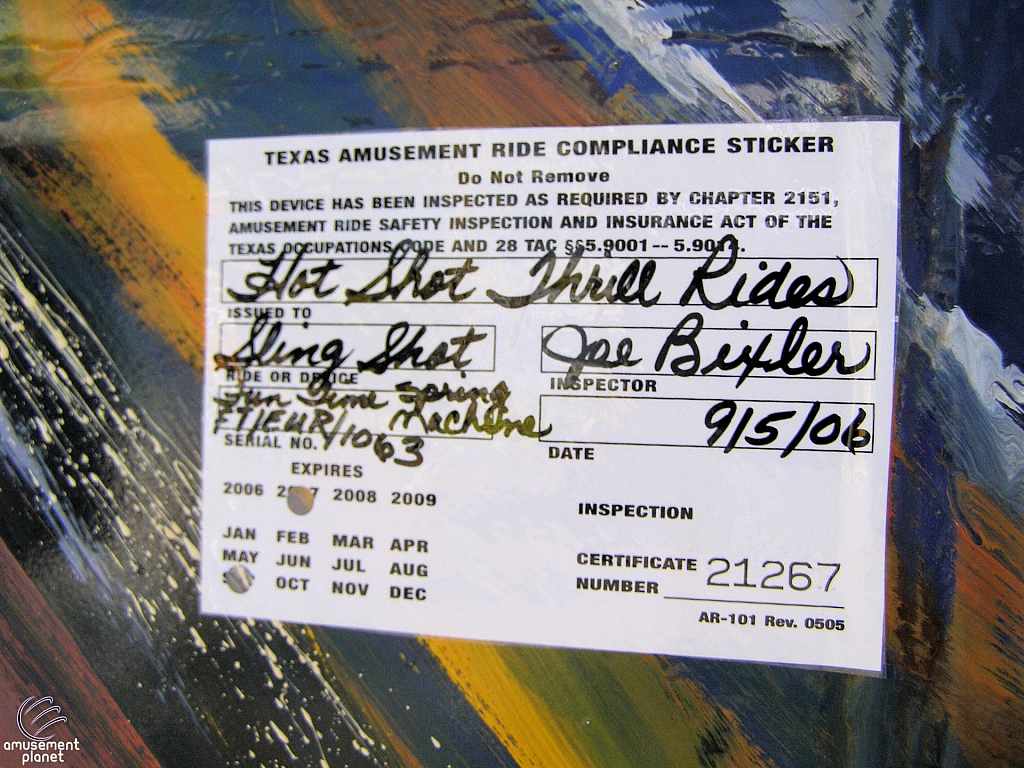 TEXAS AMUSEMENT RIDE COMPLIANCE STICKER
Do Not Remove
THIS DEVICE HAS BEEN INSPECTED AS REQUIRED BY CHAPTER 2151,
AMUSEMENT RIDE SAFETY INSPECTION AND INSURANCE ACT OF THE
TEXAS OCCUPATIONS CODE AND 28 TAC §§5.9001 -- 5.9014.
Hot Shot Thrill Rides
ISSUED TO
Sling Shot
Joe Bixler
RIDE OR DEVICE
INSPECTOR
Fun Time Spring
Machene
9/5/06
SERIAL NO.
DATE
EXPIRES
2006 2007 2008 2009
INSPECTION
JAN FEB MAR APR
MAY JUN JUL AUG
OCT NOV DEC
CERTIFICATE
NUMBER 21267
AR-101 Rev. 0505
amusement
planet